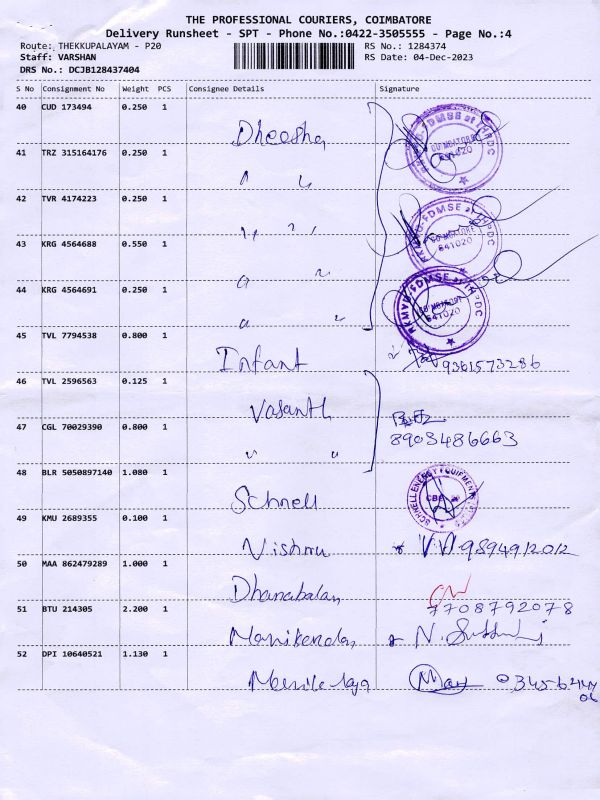 THE PROFESSIONAL COURIERS, COIMBATORE
Delivery Runsheet - SPT - Phone No.:0422-3505555 - Page No.:4
Route: THEKKUPALAYAM - P20 RS No.: 1284374
Staff: VARSHAN RS Date: 04-Dec-2023
DRS No.: DCJB128437404
S No Consignment No Weight PCS Consignee Details Signature
40 CUD 173494 0.250 1 Dheesha
41 TRZ 315164176 0.250 1 " "
42 TVR 4174223 0.250 1 " "
43 KRG 4564688 0.550 1 " "
44 KRG 4564691 0.250 1 " "
45 TVL 7794538 0.800 1 Infant 9361573286
46 TVL 2596563 0.125 1 Vasanth
47 CGL 70029390 0.800 1 " " 8903486663
48 BLR 5050897140 1.080 1 Schnell
49 KMU 2689355 0.100 1 Vishnu
50 MAA 862479289 1.000 1 Dhanabalan 7708792078
51 BTU 214305 2.200 1 Manikandan
52 DPI 10640521 1.130 1
COIMBATORE
641020
COIMBATORE
641020
641020
SCHNELL ENERGY EQUIPMENT